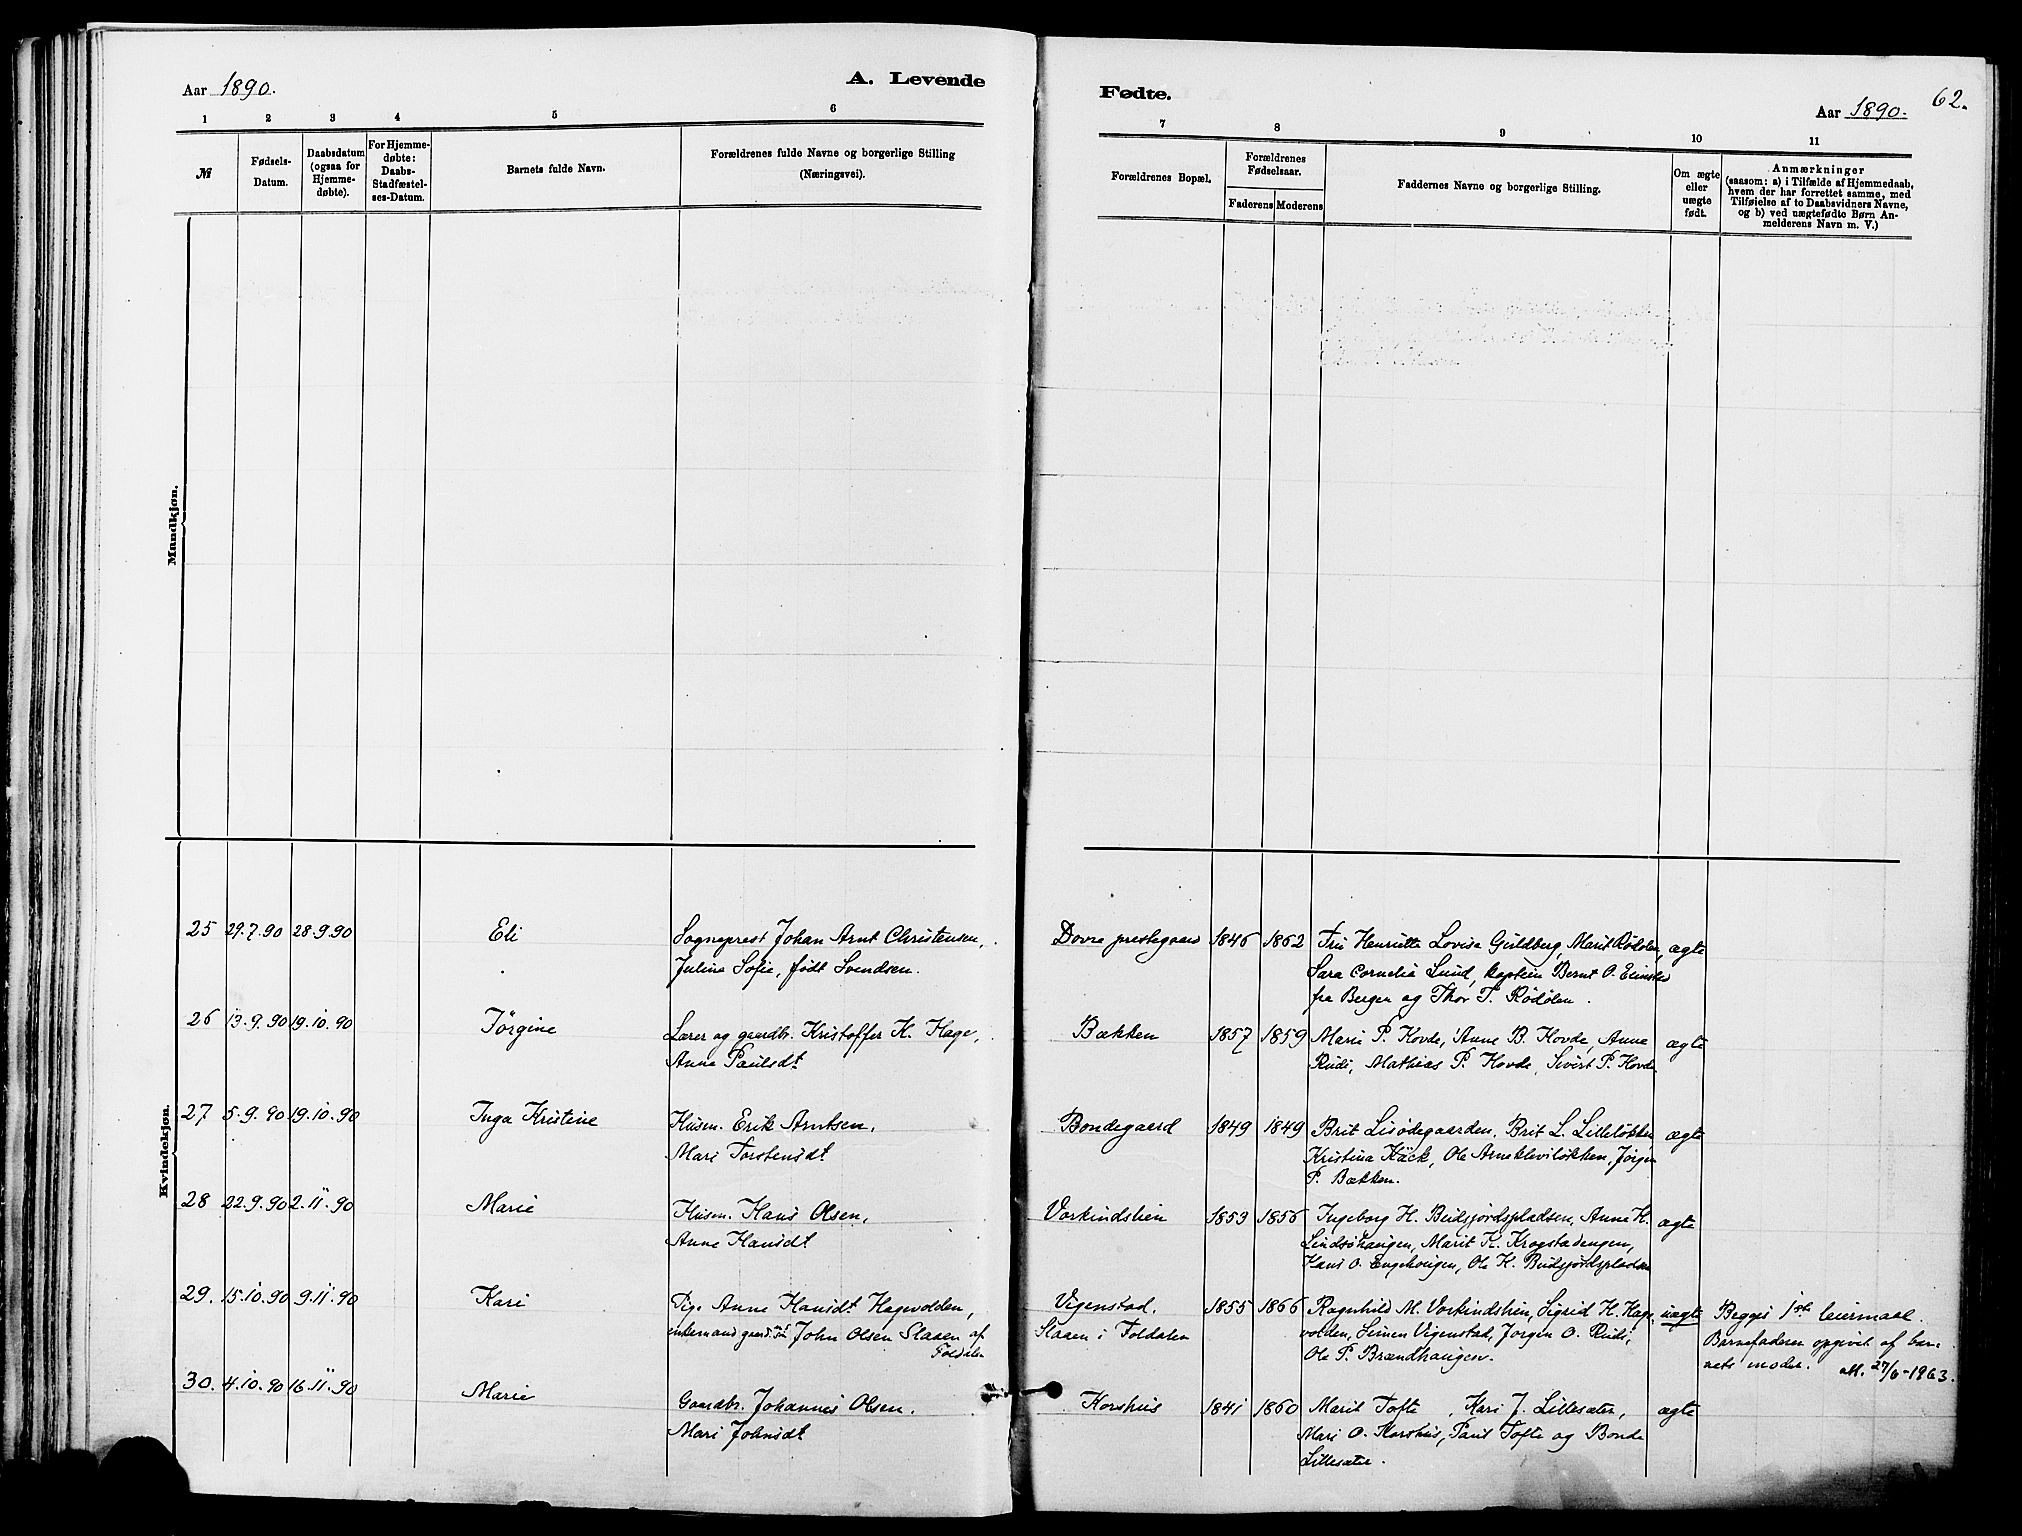 Aar 1890.
A. Levende
Fødte.
Aar 1890.
62.
1 2 3 4 5 6
7 8 9 10 11
№
Fødsels-
Datum.
Daabsdatum
(ogsaa for
Hjemme-
døbte).
For Hjemme-
døbte:
Daabs-
Stadfæstel-
ses-Datum.
Barnets fulde Navn.
Forældrenes fulde Navne og borgerlige Stilling
(Næringsvei).
Forældrenes Bopæl.
Forældrenes
Fødselsaar.
Faderens Moderens
Faddernes Navne og borgerlige Stilling.
Om ægte
eller
uægte
født.
Anmærkninger
(saasom: a) i Tilfælde af Hjemmedaab,
hvem der har forrettet samme, med
Tilføielse af to Daabsvidners Navne,
og b) ved uægtefødte Børn An-
melderens Navn m. V.)
Mandkjøn.
Kvindekjøn.
25 29.7.90 28.9.90 Eli
Sogneprest Johan Arnt Christensen,
Juline Sofie, født Svendsen.
Dovre prestegaard 1846 1862
Fru Henriette Lovise Guldberg, Marit Rødølen,
Sara Cornelia Lund, kaptein Bernt O.
fra Bergen og Thor T. Rødølen.
ægte
26 13.9.90 19.10.90 Jørgine
Lærer og gaardbr. Kristoffer K. Hage,
Anne Paulsdt
Bækken 1857 1859
Mari P. Hovde, Anne B. Hovde, Anne
Rudi, Mathias P. Hovde, Sivert P. Hovde.
ægte
27 5.9.90 19.10.90 Inga Kristine
Husm. Erik Arntsen,
Mari Torstensdt
Bondegaard 1849 1849
Brit Lisødegaarden, Brit L. Lilleløkken
Kristina Käck, Ole Arneklevløkken, Jørgen
P. Bækken.
ægte
28 22.9.90 2.11.90 Marie
Husm. Hans Olsen,
Anne Hansdt
Vorkindslien 1853 1856
Ingeborg H. Budsjordspladsen, Anne H.
Lindsøhaugen, Marit K. Krogstadengen,
Hans O. Engehaugen, Ole H. Budsjordspladsen
ægte
29. 15.10.90 9.11.90 Kari
Pige Anne Hansdt Hagevolden,
enkemand gaardms. John Olsen Slaaen af
Foldalen
Vigenstad.
Slaaen i Foldalen
1855 1866
Ragnhild M. Vorkindslien, Sigrid H. Hage-
volden, Simen Vigenstad, Jørgen O. Rudi,
Ole P. Brændhaugen.
uægte
Begges 1ste leiermaal.
Barnefaderen opgivet af bar-
nets moder. att. 27/6-1963.
30. 4.10.90 16.11.90 Marie
Gaardbr. Johannes Olsen.
Mari Johnsdt
Korshus 1841 1860
Marit Tofte, Kari J. Lillesæter,
Mari O. Korshus, Paul Tofte og Bonde
Lillesæter.
ægte